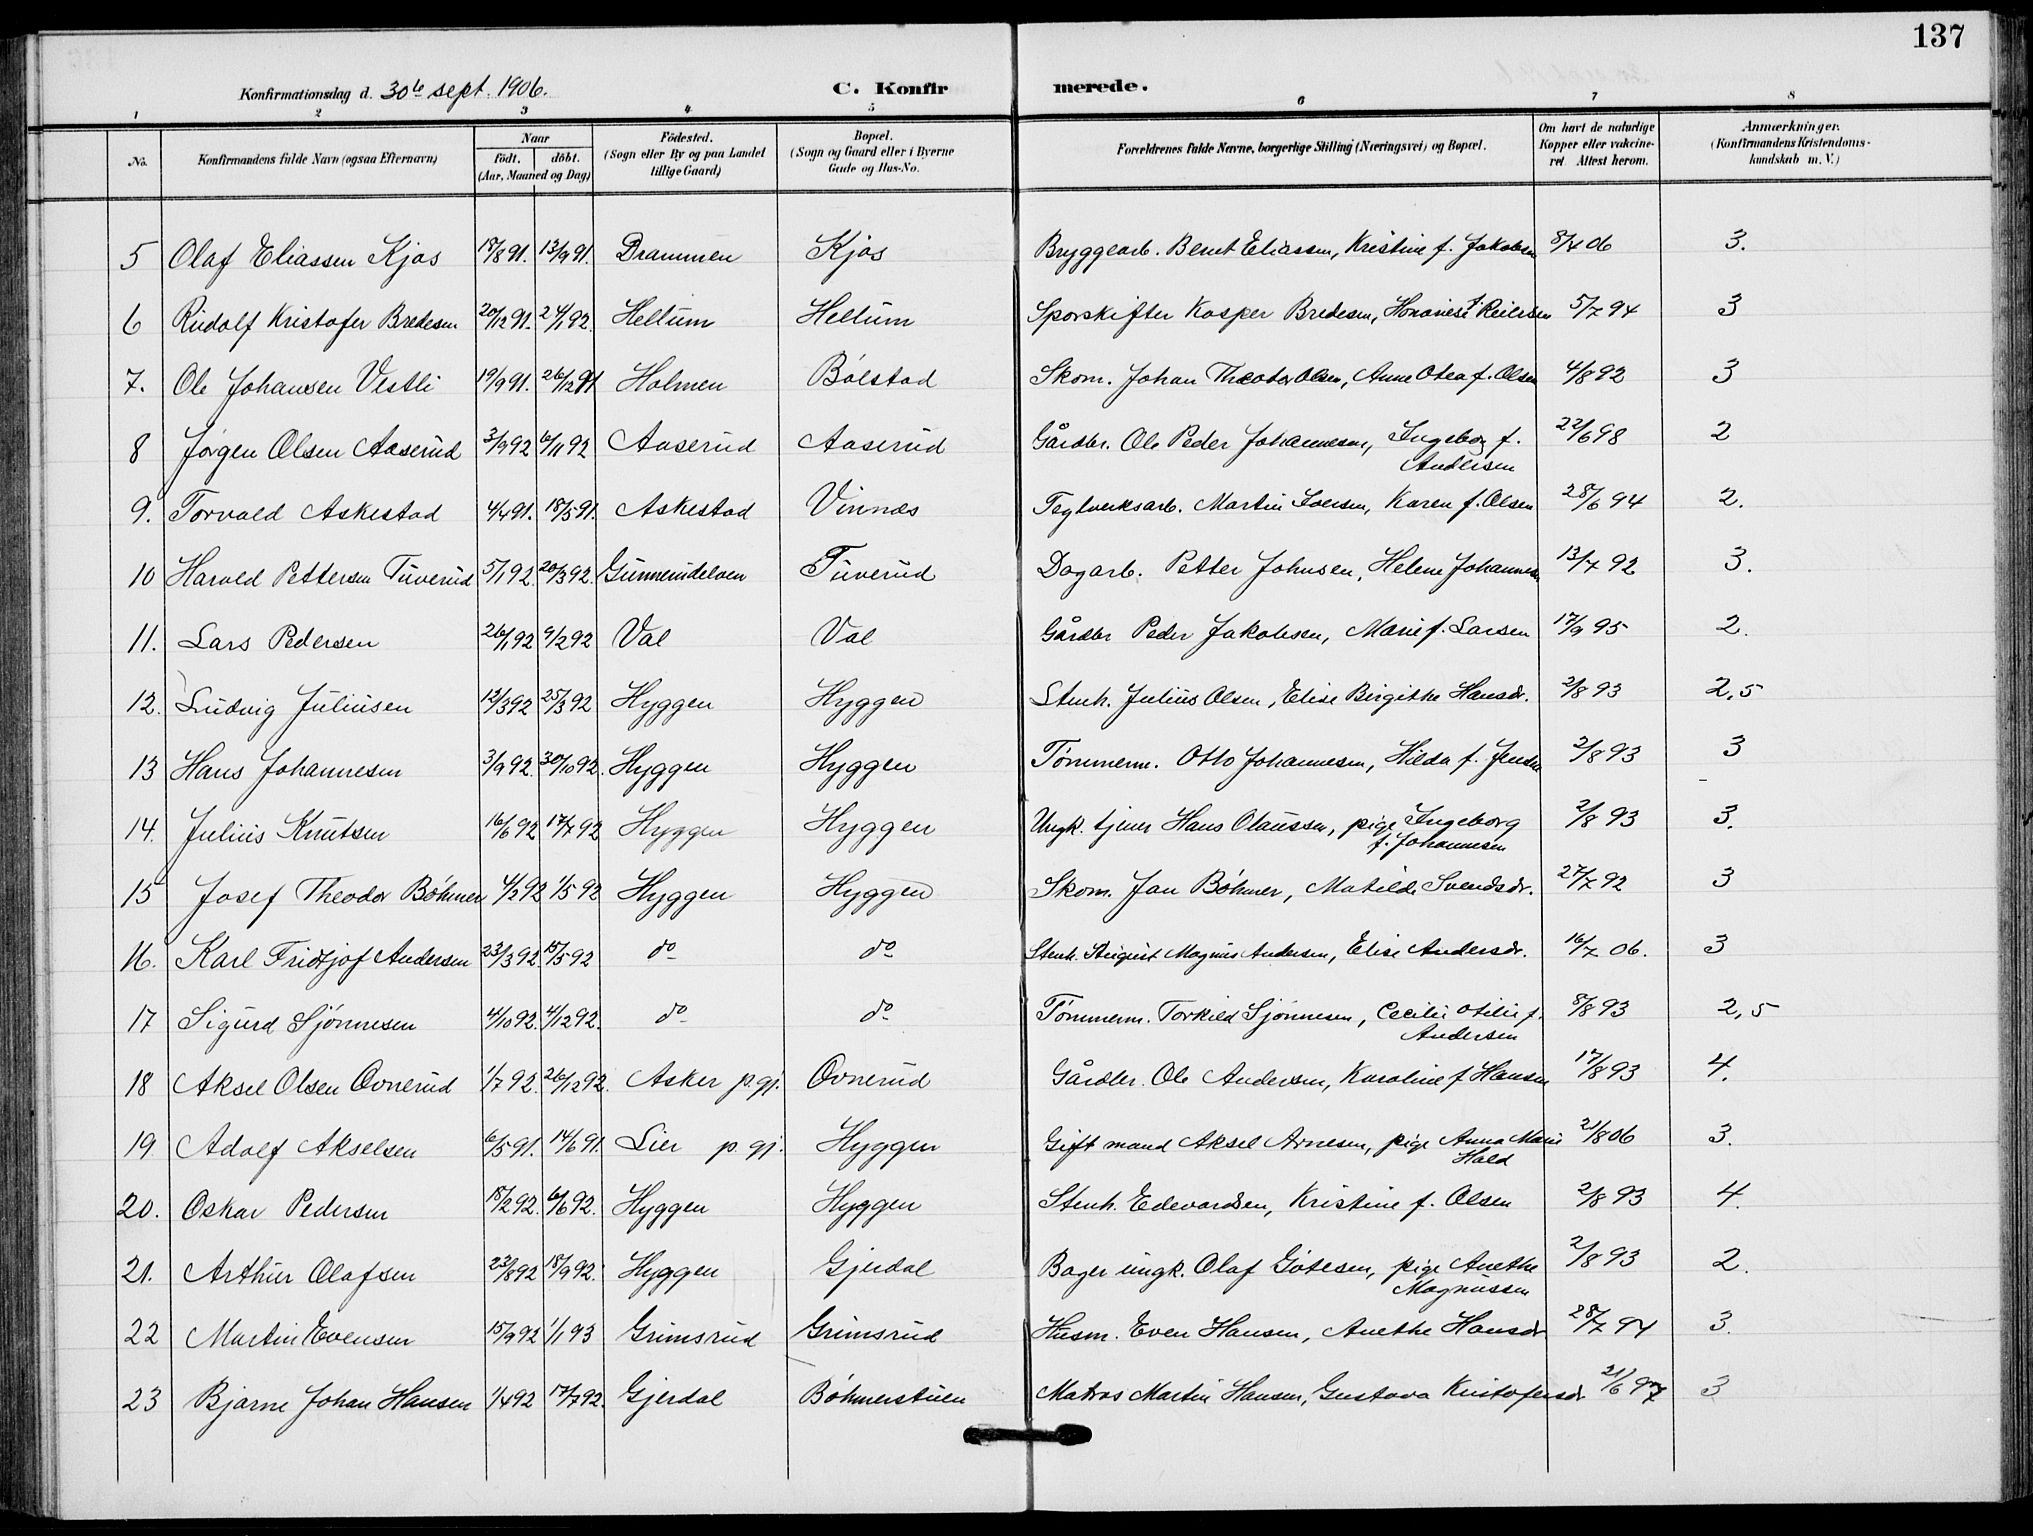 137
Konfirmationsdag d. 30te sept. 1906. C. Konfirmerede.
1 2 3 4 5 6 7 8
No. Konfirmandens fulde Navn (ogsaa Efternavn) Naar født. døbt. (Aar, Maaned og Dag) Födested. (Sogn eller By og paa Landet tillige Gaard) Bopæl. (Sogn og Gaard eller i Byerne Gade og Hus-No. Forældrenes fulde Navne, borgerlige Stilling (Næringsvei) og Bopæl. Om havt de naturlige Kopper eller vakcineret. Attest herom. Anmærkninger. (Konfirmandens Kristendomskundskab m. V.)
5 Olaf Eliassen Kjos 18/8 91. 13/9 91. Drammen Kjos Bryggearb. Bernt Eliassen, Kristine f. Jakobsen 8/4 06 3.
6 Rudolf Kristofer Bredesen 20/12 91. 24/1 92. Hellum Hellum Sporskifter Kasper Bredesen, f. Reiersen 5/7 94 3
7. Ole Johansen Vestli 19/9 91. 26/12 91 Holmen Bólstad Skom. Johan Theodor Olsen, Anne Otea f. Olsen 4/8 92 3
8 Jørgen Olsen Aaserud 3/9 92 6/11 92 Aaserud Aaserud Gårdbr. Ole Peder Johannesen, Ingeborg f.
Andersen 22/6 98 2
9. Torvald Askestad 4/4 91. 18/5 91. Askestad Vinnes Teglverksarb. Martin Iversen, Karen f. Olsen 28/6 94 2.
10 Harald Pettersen Tuverud 5/1 92. 20/3 92. Gunnerudelven Tuverud Dagarb. Petter Johnsen, Helene Johannesen 13/7 92 3.
11. Lars Pedersen 26/1 92 9/2 92 Val Val Gårdbr Peder Jakobsen, Marie f. Larsen 17/9 95 2.
12. Ludvig Juliusen 12/3 92 25/3 92 Hyggen Hyggen Stenh. Julius Olsen, Elise Birgithe Hansdr. 2/8 93 2,5
13 Hans Johannesen 3/9 92. 30/10 92. Hyggen Hyggen Tømmerm. Otto Johannesen, Hilda f. Jensen 2/8 93 3
14. Julius Knutsen 16/6 92 17/7 92 Hyggen Hyggen Ungk. tjener Hans Olaussen, pige Ingeborg
f. Johannesen 2/8 93 3.
15 Josef Theodor Böhmer 4/2 92 1/5 92 Hyggen Hyggen Skom. Jan Böhmer, Matilde Svendsdr. 27/7 92 3
16. Karl Fridtjof Andersen 23/3 92. 15/5 92 do do Stenh. August Magnus Andersen, Elise Andersdr. 16/7 06. 3
17 Sigurd Sjönnesen 4/10 92. 4/12 92. do do Tømmerm. Torkild Sjönnesen, Cecilie Otilie f.
Andersen 8/8 93 2,5
18 Aksel Olsen Ovnerud 1/7 92. 26/12 92. Asker p.gj. Ovnerud Gårdbr. Ole Andersen, Karoline f. Hansen 17/8 93 4.
19. Adolf Akselsen 6/5 91. 14/6 91. Lier p.gj. Hyggen Gift mand Aksel Arnesen, pige Anna Marie
Hald 21/8 06 3.
20. Oskar Pedersen 18/2 92. 6/6 92. Hyggen Hyggen Stenh. Edevardsen, Kristine f. Olsen 2/8 93 4.
21. Arthur Olafsen 23/8 92 18/9 92. Hyggen Gjerdal Bager ungk. Olaf Gótesen, pige Anethe
Magnussen 2/8 93 2.
22 Martin Evensen 15/9 92 1/1 93 Grimsrud Grimsrud Husm. Even Hansen, Anethe Hansdr. 28/7 94 3.
23 Bjarne Johan Hansen 1/4 92 17/7 92. Gjerdal Böhmerstuen Matros Martin Hansen, Gustava Kristofersdr 21/6 97 3